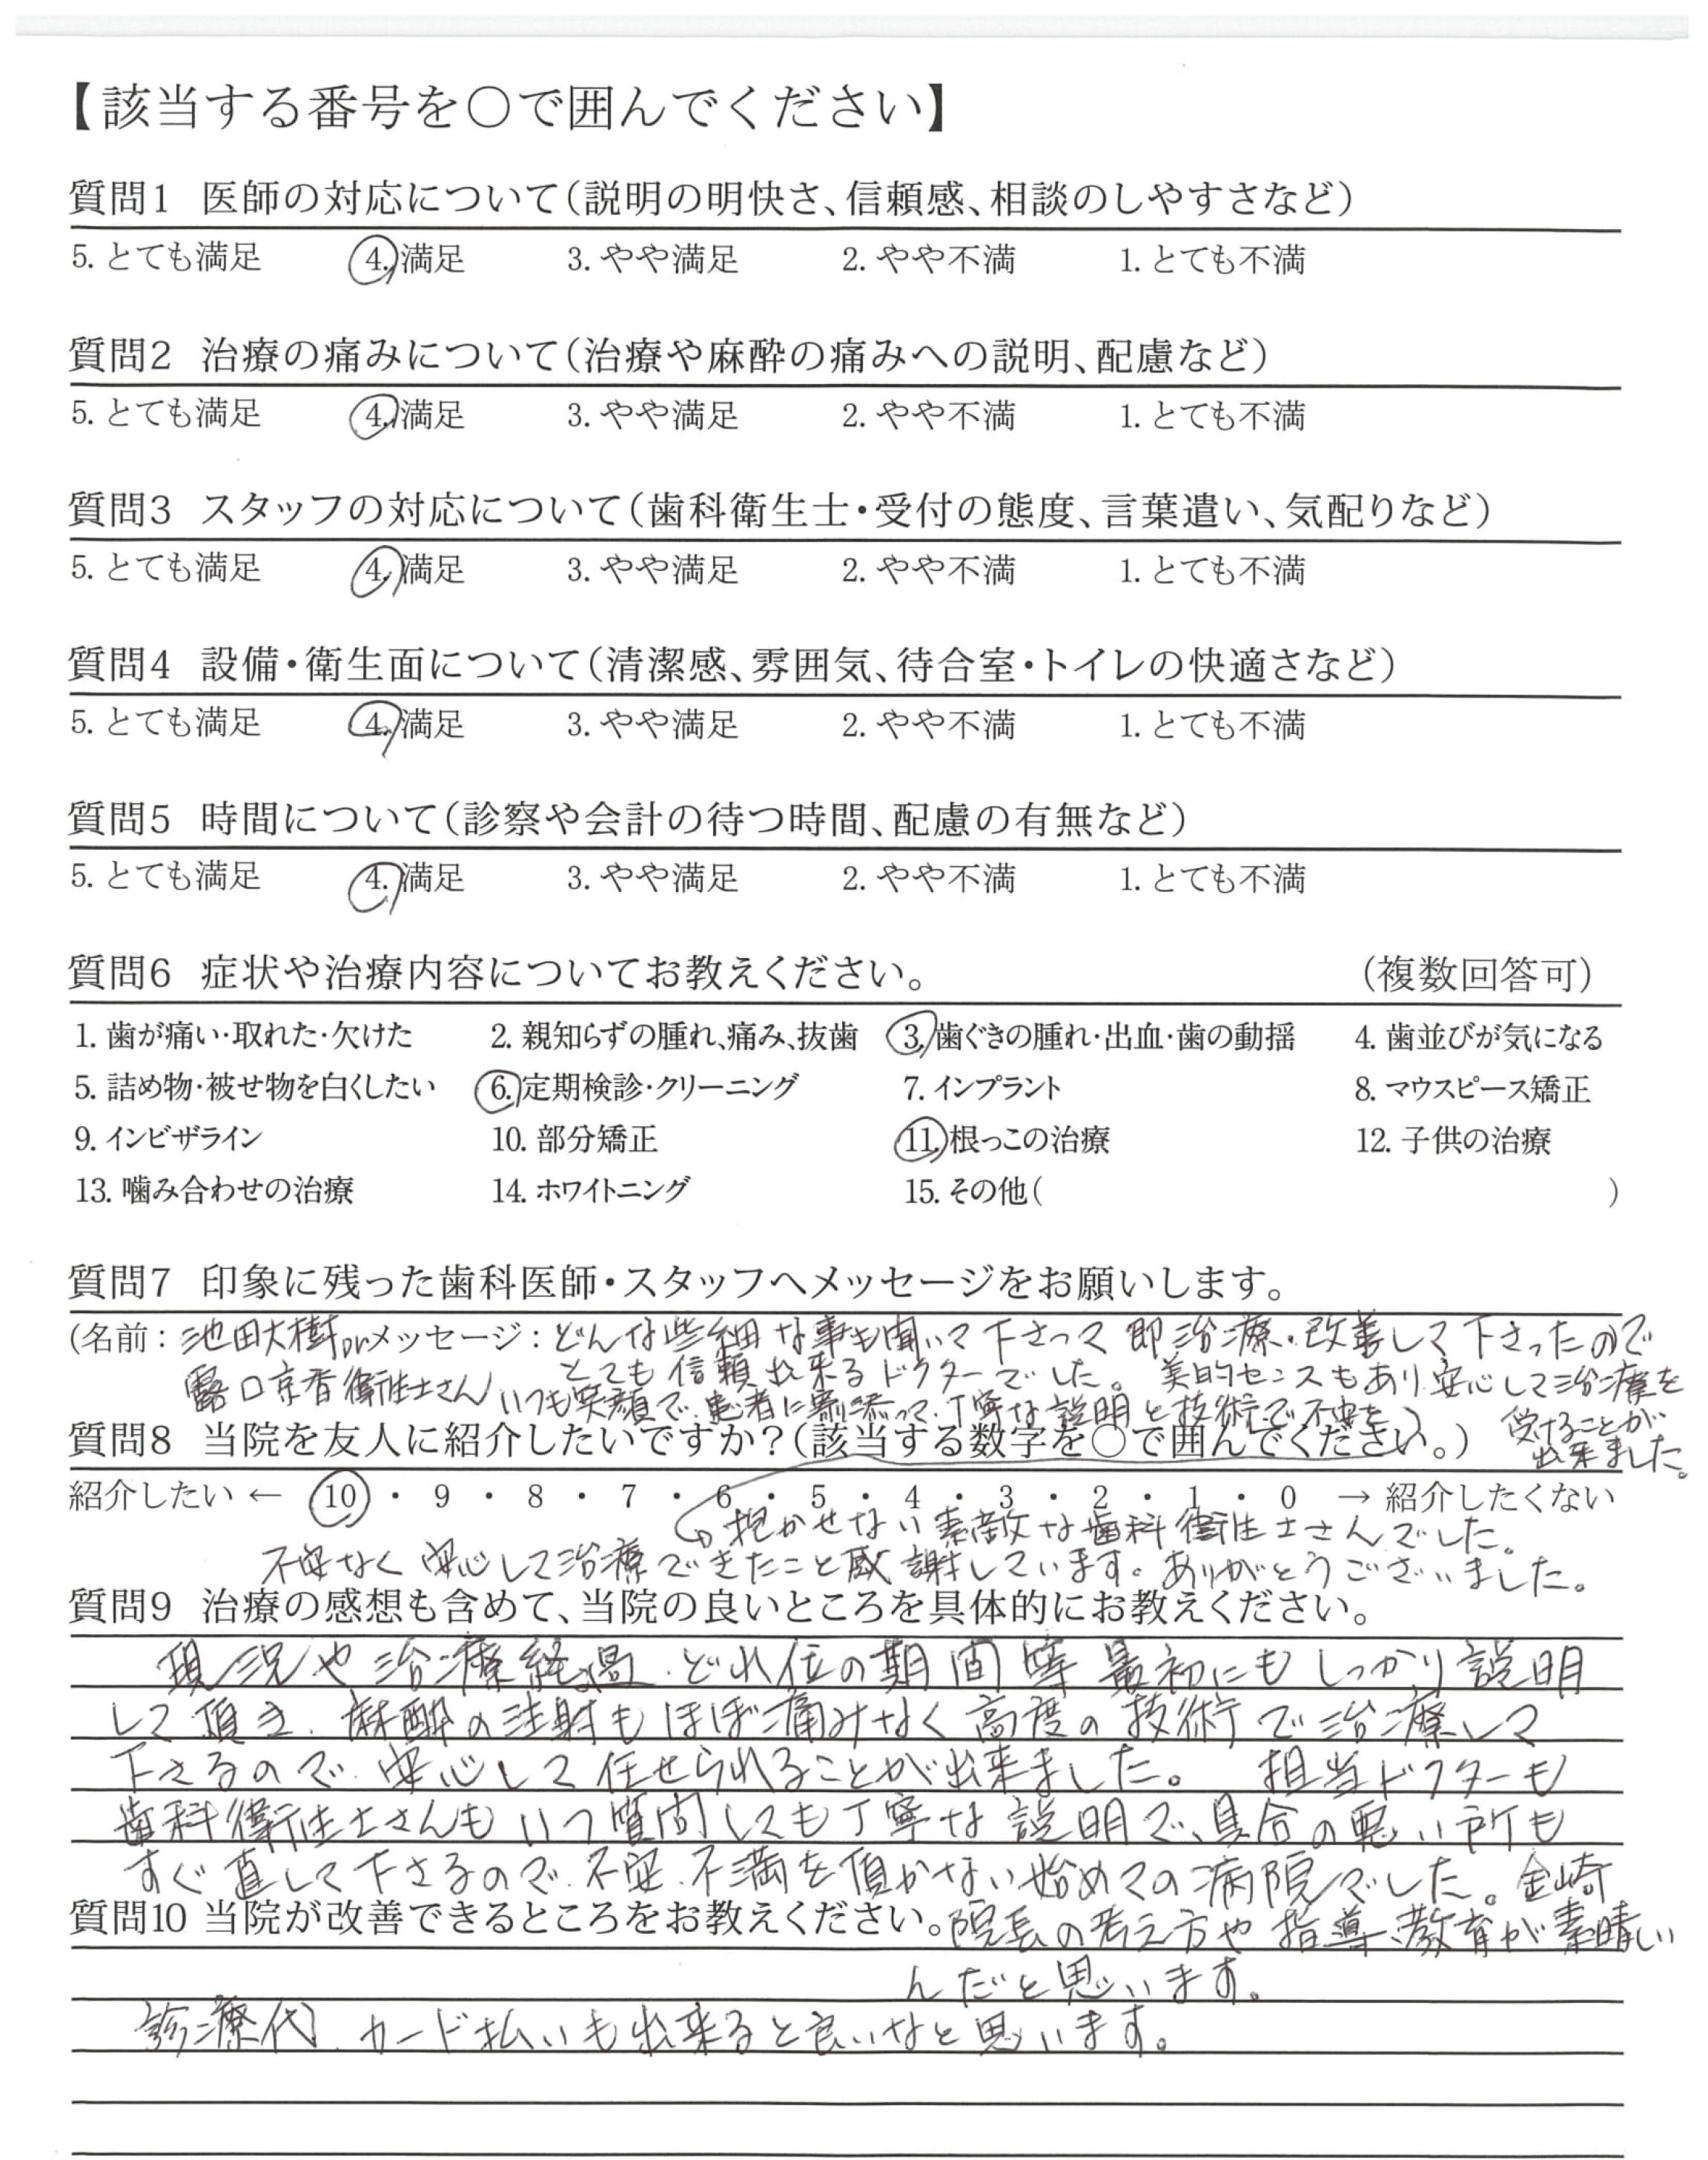 【該当する番号を〇で囲んでください】
質問1 医師の対応について(説明の明快さ、信頼感、相談のしやすさなど)
5. とても満足 4. 満足 3. やや満足 2. やや不満 1. とても不満
質問2 治療の痛みについて(治療や麻酔の痛みへの説明、配慮など)
5. とても満足 4. 満足 3. やや満足 2. やや不満 1. とても不満
質問3 スタッフの対応について(歯科衛生士・受付の態度、言葉遣い、気配りなど)
5. とても満足 4. 満足 3. やや満足 2. やや不満 1. とても不満
質問4 設備・衛生面について(清潔感、雰囲気、待合室・トイレの快適さなど)
5. とても満足 4. 満足 3. やや満足 2. やや不満 1. とても不満
質問5 時間について(診察や会計の待つ時間、配慮の有無など)
5. とても満足 4. 満足 3. やや満足 2. やや不満 1. とても不満
質問6 症状や治療内容についてお教えください。 (複数回答可)
1. 歯が痛い・取れた・欠けた 2. 親知らずの腫れ、痛み、抜歯 3. 歯ぐきの腫れ・出血・歯の動揺 4. 歯並びが気になる
5. 詰め物・被せ物を白くしたい 6. 定期検診・クリーニング 7. インプラント 8. マウスピース矯正
9. インビザライン 10. 部分矯正 11. 根っこの治療 12. 子供の治療
13. 噛み合わせの治療 14. ホワイトニング 15. その他( )
質問7 印象に残った歯科医師・スタッフへメッセージをお願いします。
(名前: 池田大樹Dr メッセージ: どんな些細な事も聞いて下さって即治療・改善して下さったので
とても信頼出来るドクターでした。美的センスもあり、安心して治療を
受けることが
出来ました。
露口京香衛生士さん いつも笑顔で、患者に寄り添って、丁寧な説明と技術で不安を)
質問8 当院を友人に紹介したいですか?(該当する数字を〇で囲んでください。)
紹介したい ← 10 ・ 9 ・ 8 ・ 7 ・ 6 ・ 5 ・ 4 ・ 3 ・ 2 ・ 1 ・ 0 → 紹介したくない
抱かせない素敵な歯科衛生士さんでした。
不安なく安心して治療できたこと感謝しています。ありがとうございました。
質問9 治療の感想も含めて、当院の良いところを具体的にお教えください。
現況や治療経過、どれ位の期間等最初にもしっかり説明
して頂き、麻酔の注射もほぼ痛みなく高度の技術で治療して
下さるので、安心して任せられることが出来ました。 担当ドクターも
歯科衛生士さんもいつ質問しても丁寧な説明で、具合の悪い所も
すぐ直して下さるので、不安、不満を項かない始めての病院でした。金崎
院長の考え方や指導、教育が素晴しい
んだと思います。
質問10 当院が改善できるところをお教えください。
診療代、カード払いも出来ると良いなと思います。